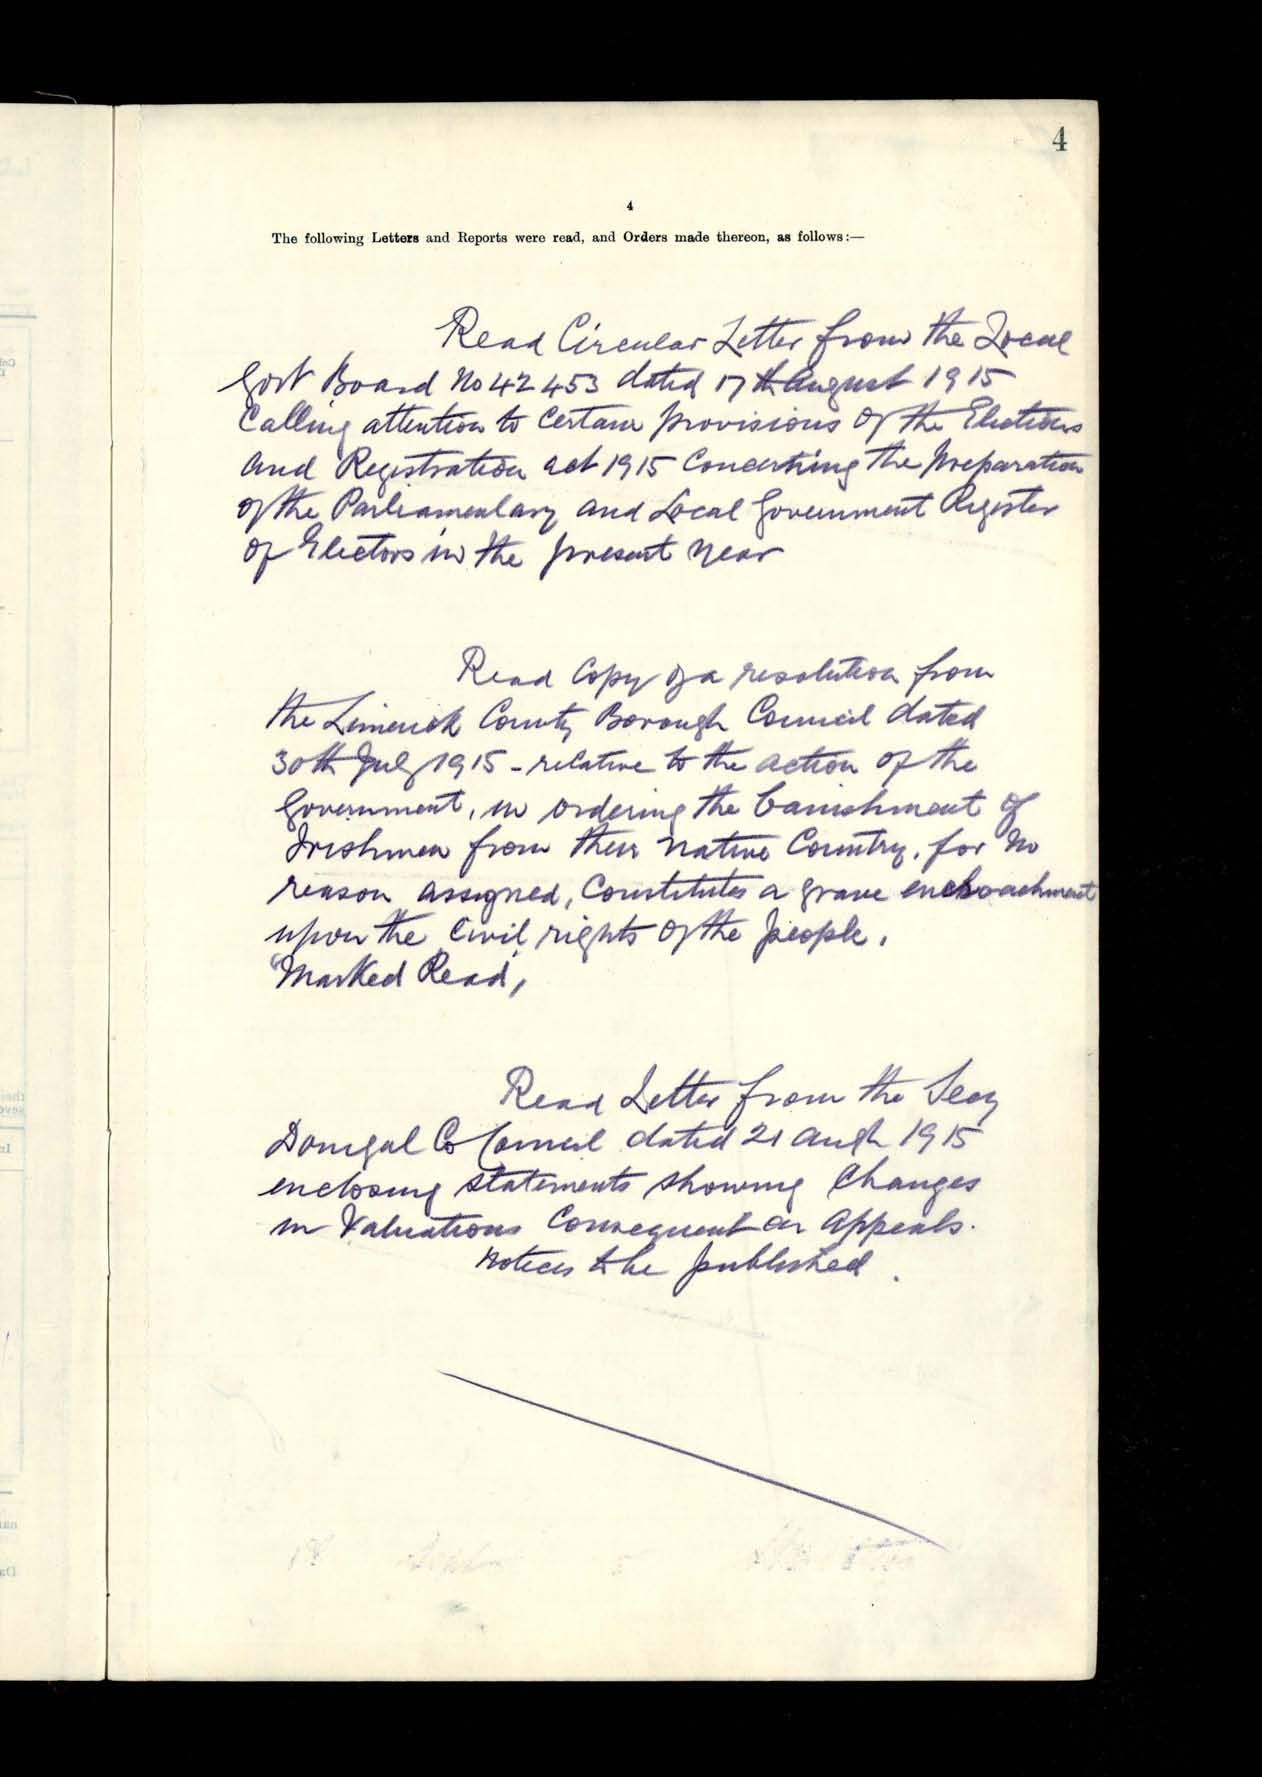 4
4
The following Letters and Reports were read, and Orders made thereon, as follows:—
Read Circular Letter from the Local
Govt Board No 42453 dated 17th August 1915
Calling attention to Certain provisions of the Elections
and Registration act 1915 Concerning the preparation
of the Parliamentary and Local Government Register
of Electors in the present year
Read Copy of a resolution from
the Limerick County Borough Council dated
30th July 1915 - relative to the action of the
Government, in ordering the banishment of
Irishmen from their native Country, for no
reason assigned, Constitutes a grave encroachment
upon the Civil rights of the people.
"Marked Read",
Read Letter from the Secy
Donegal Co Council dated 21 Augt 1915
enclosing statements showing Changes
in Valuations Consequent on appeals.
Notices to be published.